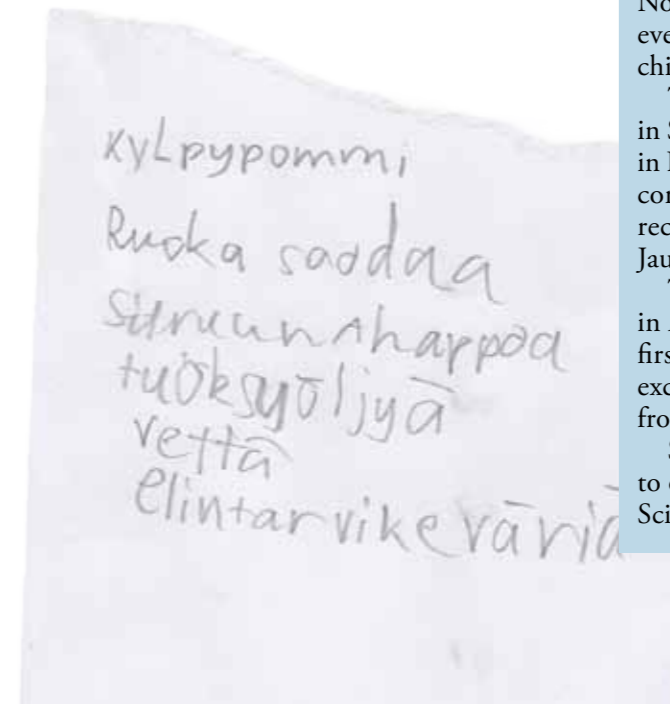 KyLpypommi
Ruoka soodaa
Sitruunahappoa
tuöksyöljyä
vettä
elintarvikeväriä
No
eve
chi
in
in
con
rec
Jau
in
firs
exc
fro
to
Sci